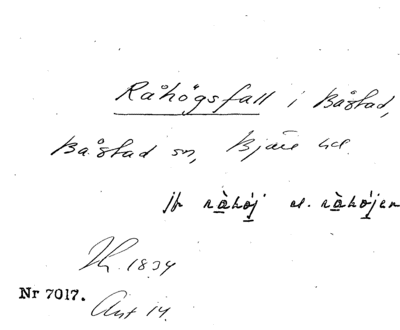 Råhögsfall i Båstad,
Båstad sn, Bjäre hd.
jfr råhöj el. råhöjen
1834
Nr 7017.
Ant 14